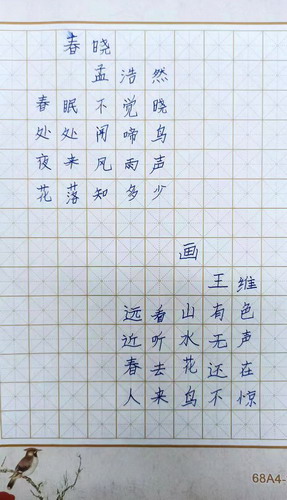 春晓
孟浩然
春眠不觉晓
处处闻啼鸟
夜来风雨声
花落知多少
画
王维
远看山有色
近听水无声
春去花还在
人来鸟不惊
68A4-